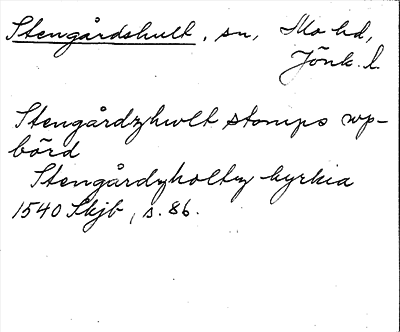 Stengårdshult, sn, Mo hd,
Jönk. l.
Stengårdzhwlt stomps vp-
börd
Stengårdzholtz kyrkia
1540 Skjb, s. 86.